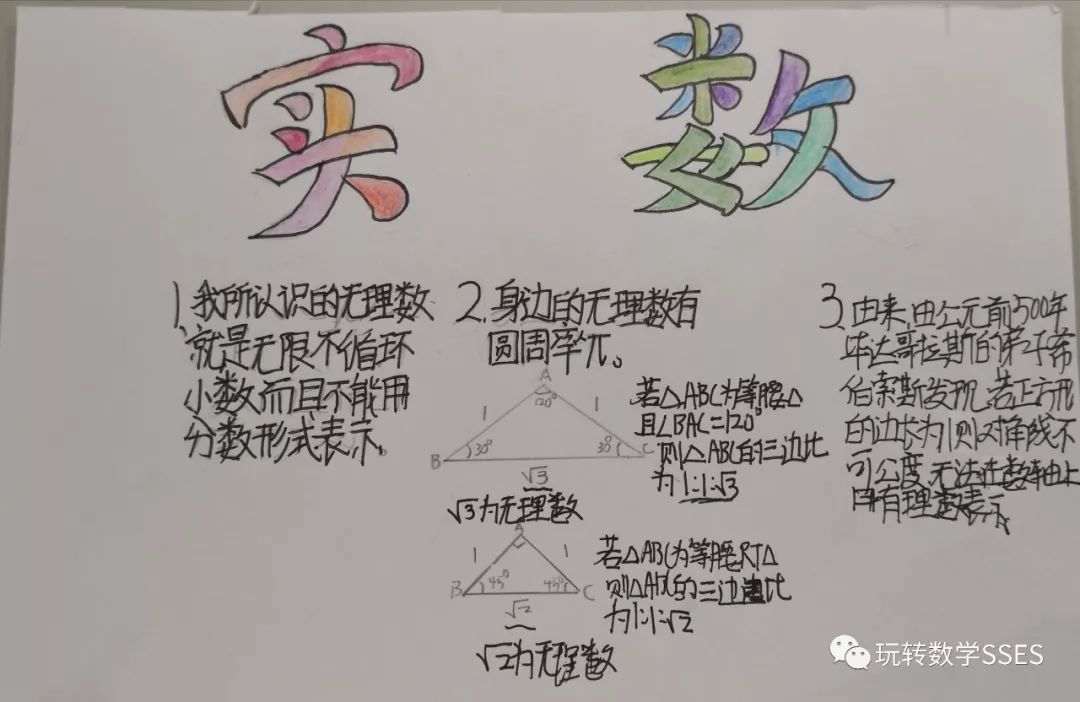 实数
1. 我所认识的无理数
就是无限不循环
小数而且不能用
分数形式表示。
2. 身边的无理数有
圆周率π。
A
120°
1
1
B
30°
30°
C
√3
√3为无理数
若△ABC为等腰△
且∠BAC=120°
则△ABC的三边比
为1:1:√3
A
1
1
B
45°
45°
C
√2
√2为无理数
若△ABC为等腰RT△
则△ABC的三边比
为1:1:√2
3. 由来:由公元前500年
毕达哥拉斯的弟子希
伯索斯发现,若正方形
的边长为1则对角线不
可公度,无法在数轴上
用有理数表示。
玩转数学SSES